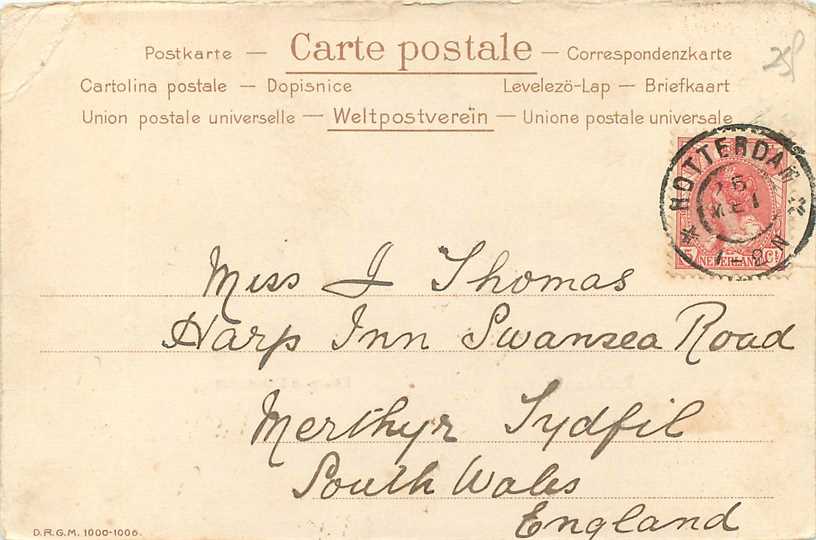 Postkarte — Carte postale — Correspondenzkarte
Cartolina postale — Dopisnice Levelezö-Lap — Briefkaart
Union postale universelle — Weltpostverein — Unione postale universale
25f
ROTTERDAM
MEI
NEDERLAND
Miss J Thomas
Harp Inn Swansea Road
Merthyr Tydfil
South Wales
England
D.R.G.M. 1000-1006.